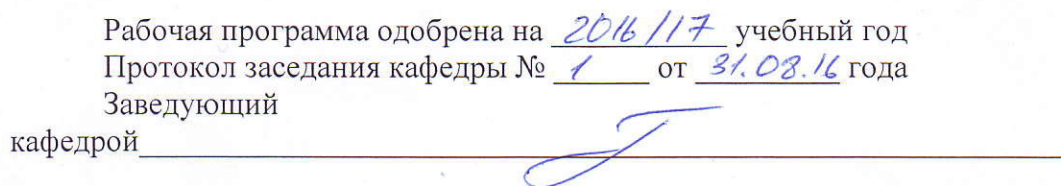 Рабочая программа одобрена на 2016/17 учебный год
Протокол заседания кафедры № 1 от 31.08.16 года
Заведующий
кафедрой